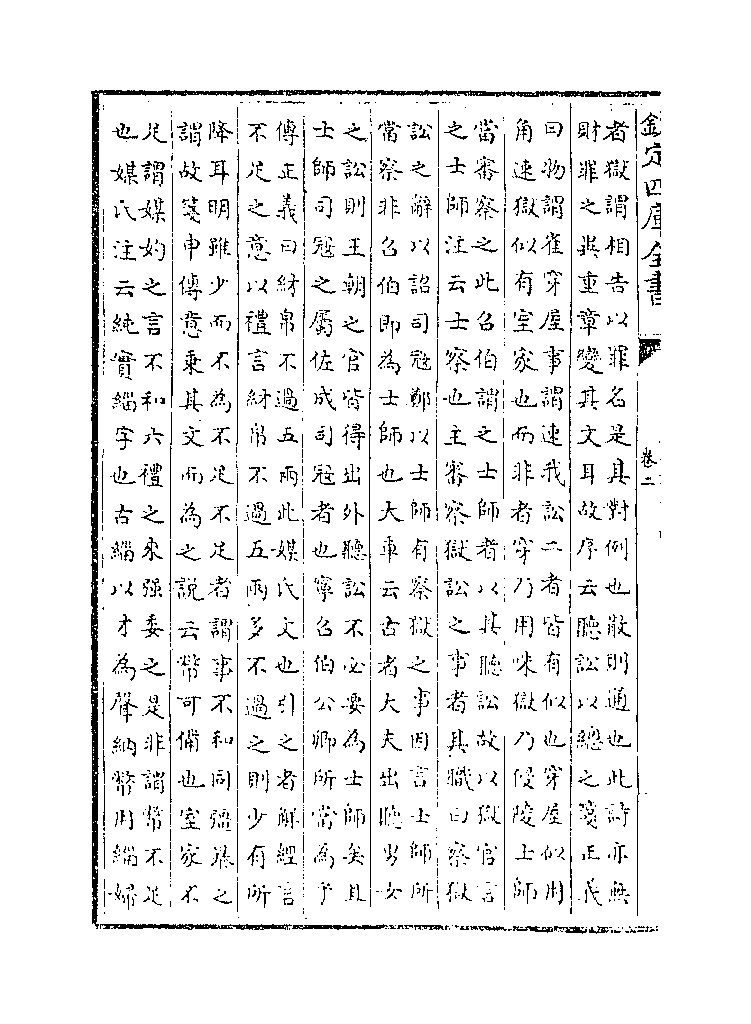 欽定四庫全書
卷二
者獄謂相告以罪名是其對例也散則通也此詩亦無
財罪之與重章變其文耳故序云聽訟以總之箋正義
曰物謂雀穿屋事謂速我訟二者皆有似也穿屋似用
角速獄似有室家也而非者穿乃用咮獄乃侵陵士師
當審察之此召伯謂之士師者以其聽訟故以獄官言
之士師注云士察也主審察獄訟之事者其職曰察獄
訟之辭以詔司寇鄭以士師有察獄之事因言士師所
當察非召伯即為士師也大車云古者大夫出聽男女
之訟則王朝之官皆得出外聽訟不必要為士師矣且
士師司寇之屬佐成司寇者也寧召伯公卿所當為乎
傳正義曰紂帛不過五兩此媒氏文也引之者解經言
不足之意以禮言紂帛不過五兩多不過之則少有所
降耳明雖少而不為不足不足者謂事不和同彊暴之
謂故箋申傳意乗其文而為之説云幣可備也室家不
足謂媒妁之言不和六禮之來强委之是非謂幣不足
也媒氏注云純實緇字也古緇以才為聲納幣用緇婦